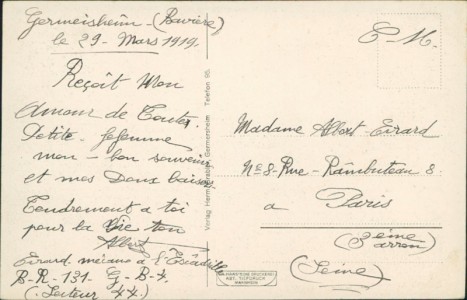 Germeisheim - (Bavière)
le 29 - Mars 1919.
Reçoit Mon
Amour de Toute
Petite - fefemme
mon - bon souvenir
et mes Doux baisers
Tendrement a toi
pour la Vie ton
Albert
Eirard mécano a l'Escadrille
B-R-131- G-B-4.
(Secteur 44.)
C-M.
Madame Albert-Eirard
Nº 8-Rue-Rambuteau 8.
a Paris
(3ème
arron)
(Seine)
Germersheim Telefon 95